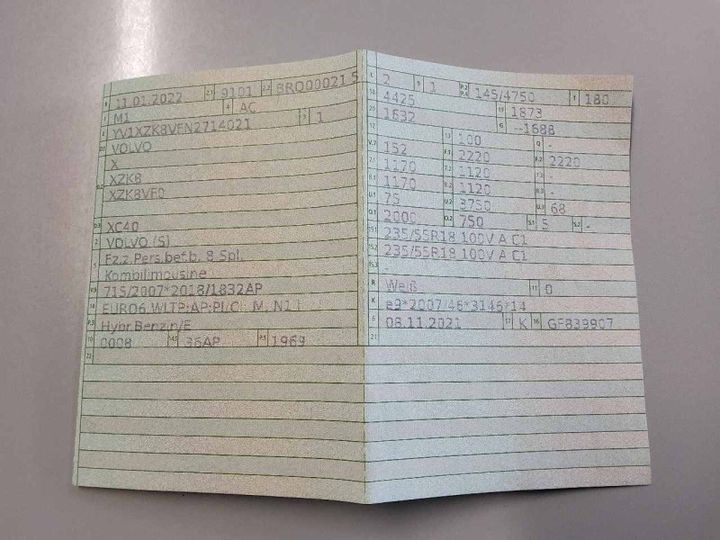 11.01.2022 9101 BRO00021 5
M1 AC
YV1XZK8VFN2714021 1
VOLVO
X
XZK8
XZK8VF0
XC40
VOLVO (S)
Fz.z.Pers.bef.b. 8 Spl.
Kombilimousine
715/2007*2018/1832AP
EURO6;WLTP;AP;PI/CI; M, N1 I
Hybr.Benzin/E
0008 36AP 1969
2 1 145/4750 180
4425 1873
1632 --1688
100 -
152 2220 2220
1170 1120 -
1170 1120 -
75 3750 68
2000 750 5 -
235/55R18 100V A C1
235/55R18 100V A C1
-
Weiß 0
e9*2007/46*3146*14
08.11.2021 K GF839907